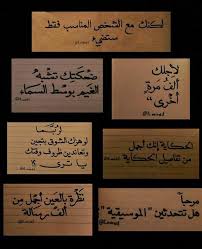 لكنك مع الشخص المناسب فقط
ستضيء
ضحكتك تشبه
الغيم بوسط السماء
لأجلك
ألف مرة
أخرى"
لربما
لوهزك الشوق بتجين
وتعاندين ظروف وقتك
يا ترى
الحكاية إنك أجمل
من تفاصيل الحكاية
نظرة بالعين أجمل من
ألف رسالة
مرحباً
هل تتحدثين "الموسيقية"